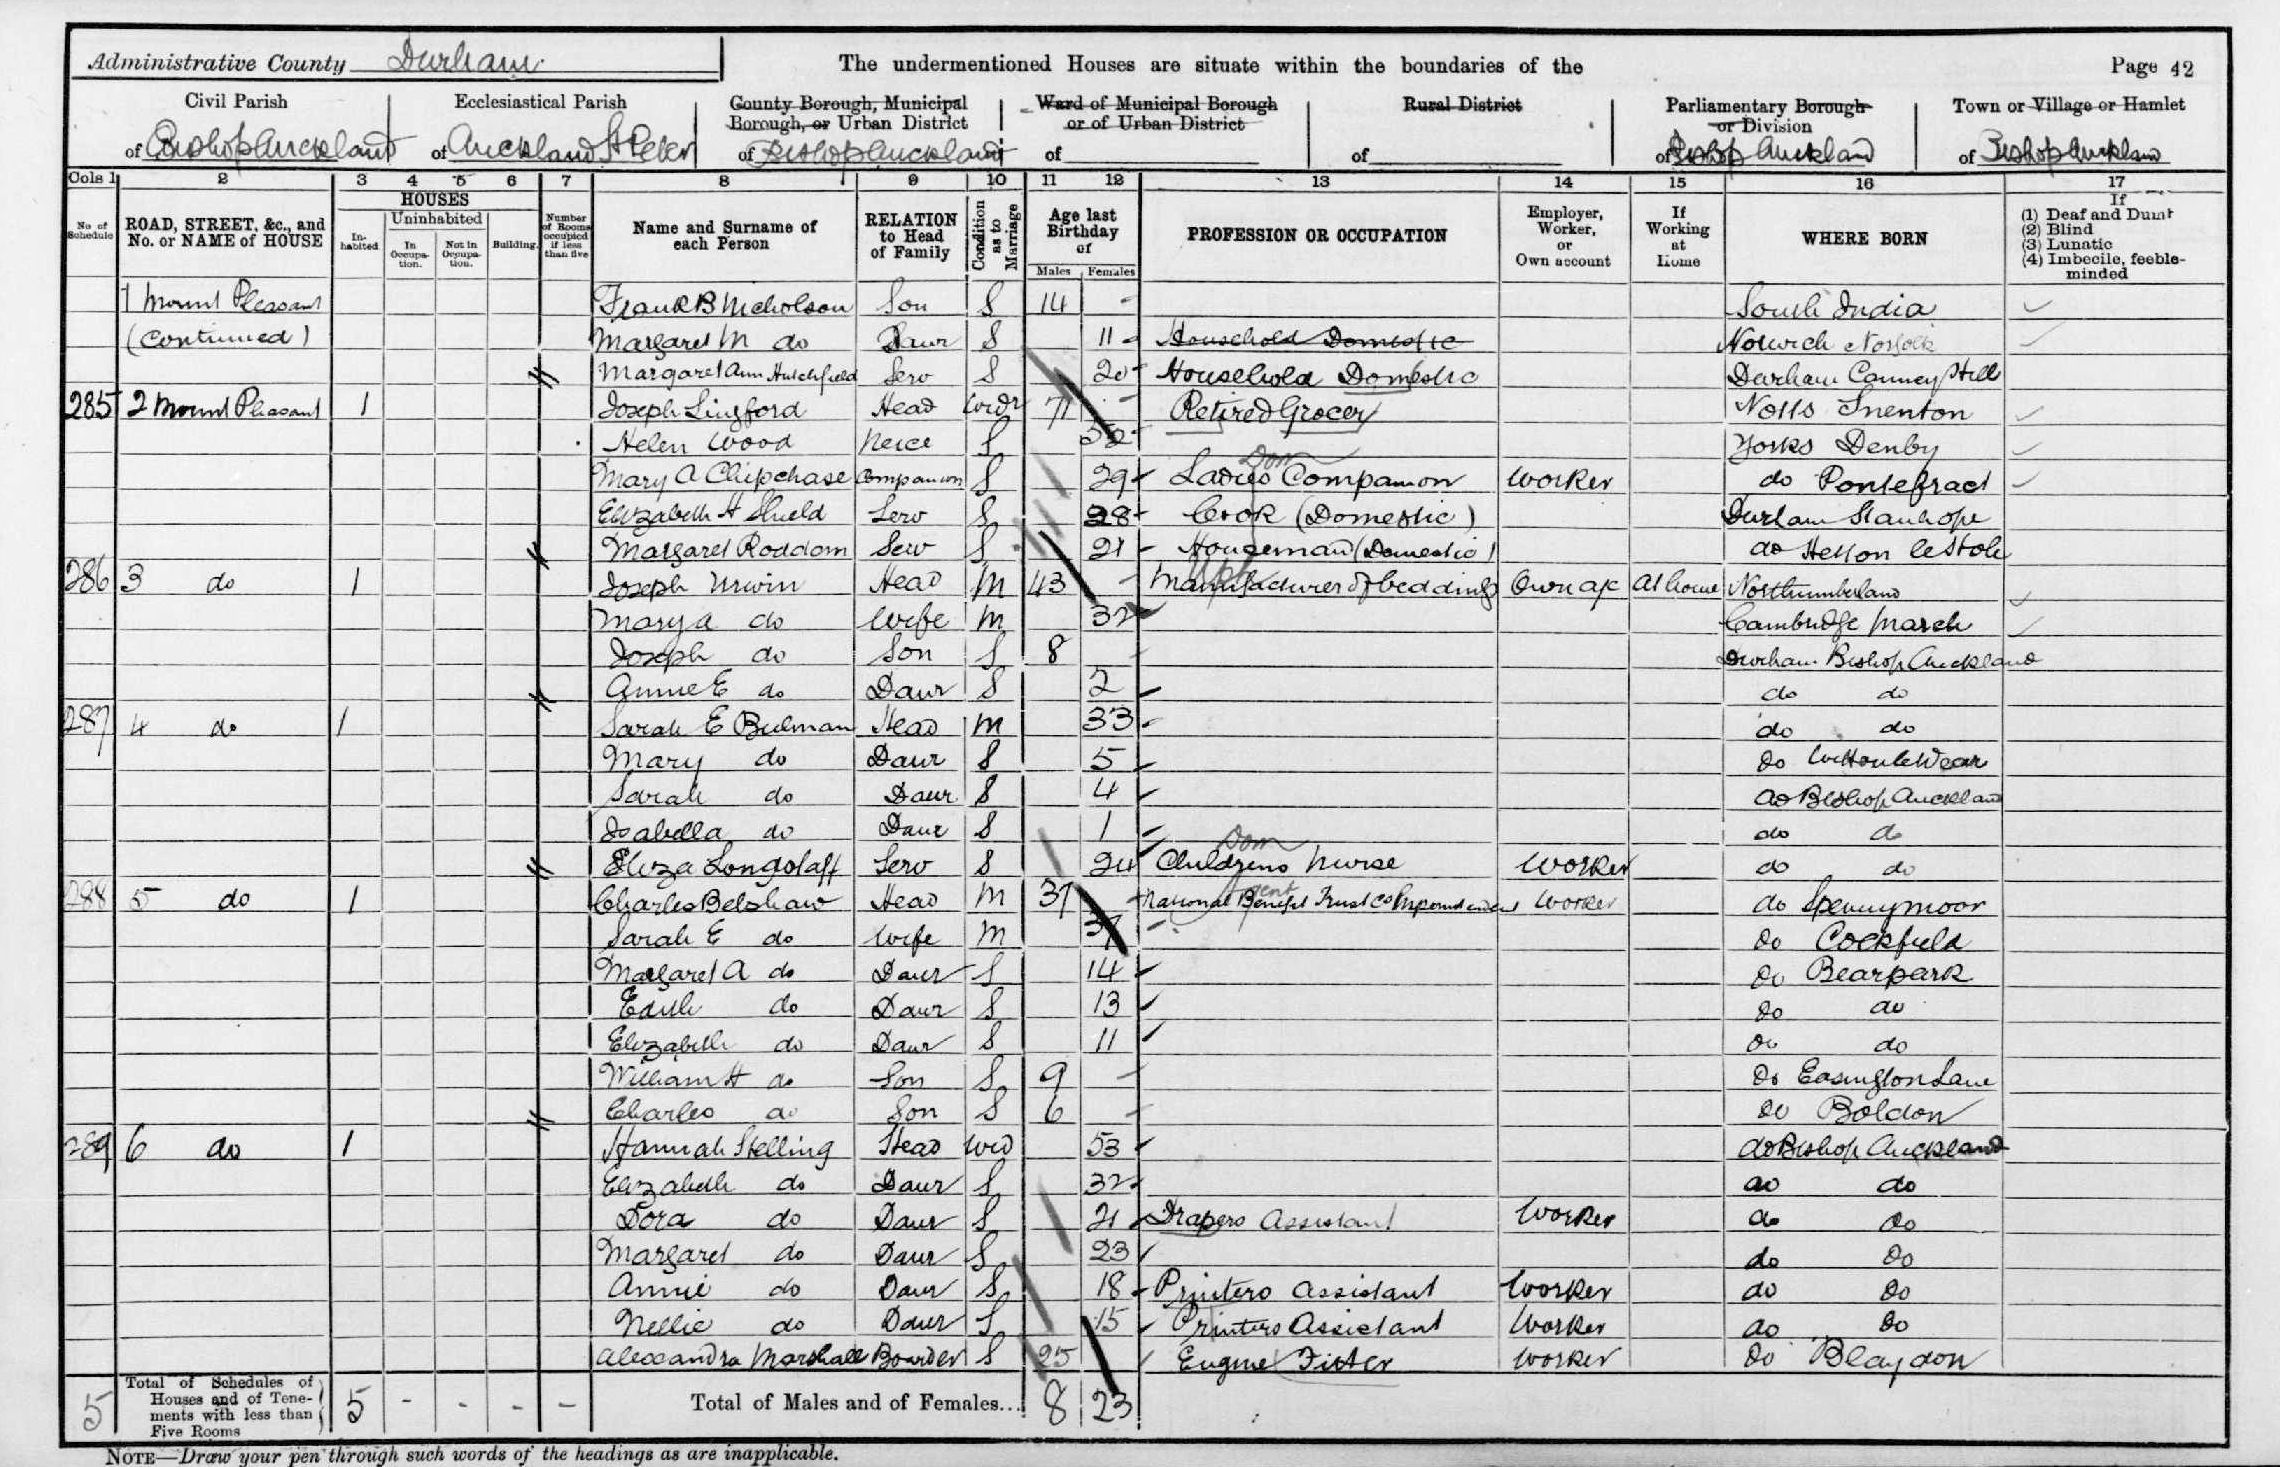 Administrative County Durham
The undermentioned Houses are situate within the boundaries of the
Page 42
Civil Parish
of Bishop Auckland
Ecclesiastical Parish
of Auckland St Peter
County Borough, Municipal Borough, or Urban District
of Bishop Auckland
Ward of Municipal Borough or of Urban District
of
Rural District
of
Parliamentary Borough or Division
of Bishop Auckland
Town or Village or Hamlet
of Bishop Auckland
Cols 1 2 3 4 5 6 7 8 9 10 11 12 13 14 15 16 17
No. of Schedule
ROAD, STREET, &c., and No. or NAME of HOUSE
HOUSES
Inhabited
Uninhabited
In Occupation.
Not in Occupation.
Building.
Number of Rooms occupied if less than five
Name and Surname of each Person
RELATION to Head of Family
Condition as to Marriage
Age last Birthday of
Males Females
PROFESSION OR OCCUPATION
Employer, Worker, or Own account
If Working at Home
WHERE BORN
If
(1) Deaf and Dumb
(2) Blind
(3) Lunatic
(4) Imbecile, feeble-minded
1 Mount Pleasant Frank B Nicholson Son S 14 - South India
(continued) Margaret M do Daur S 11 Household Domestic Norwich Norfolk
Margaret Ann Hutchfield Serv S 20 Household Domestic Durham Canney Hill
285 2 Mount Pleasant 1 Joseph Lingford Head Widr 71 - Retired Grocer Notts Snenton
Helen Wood Neice S 52 Yorks Denby
Mary A Chipchase Companion S 29 Ladies Companion Dom Worker do Pontefract
Elizabeth H Shield Serv S 28 Cook (Domestic) Durham Stanhope
Margaret Roddom Serv S 21 Housemaid (Domestic) do Hetton le Hole
286 3 do 1 Joseph Irwin Head M 43 - Manufacturer of bedding Own a/c At home Northumberland
Mary A do Wife M 32 Cambridge March
Joseph do Son S 8 - Durham Bishop Auckland
Annie E do Daur S 2 do do
287 4 do 1 Sarah E Bulman Head M 33 do do
Mary do Daur S 5 do Witton le Wear
Sarah do Daur S 4 do Bishop Auckland
Isabella do Daur S 1 do do
Eliza Longstaff Serv S 24 Childrens Nurse Dom Worker do do
288 5 do 1 Charles Belshaw Head M 37 National Benefit Trust Co Agent Worker do Spennymoor
Sarah E do Wife M 37 do Cockfield
Margaret A do Daur S 14 do Bearpark
Edith do Daur S 13 do do
Elizabeth do Daur S 11 do do
William H do Son S 9 - do Easington Lane
Charles do Son S 6 - do Boldon
289 6 do 1 Hannah Stelling Head Wid 53 do Bishop Auckland
Elizabeth do Daur S 32 do do
Dora do Daur S 21 Drapers Assistant Worker do do
Margaret do Daur S 23 do do
Annie do Daur S 18 Printers Assistant Worker do do
Nellie do Daur S 15 Printers Assistant Worker do do
Alexandra Marshall Boarder S 25 Engine Fitter Worker do Blaydon
5 Total of Schedules of Houses and of Tenements with less than Five Rooms 5 - - - - Total of Males and of Females... 8 23
NOTE—Draw your pen through such words of the headings as are inapplicable.